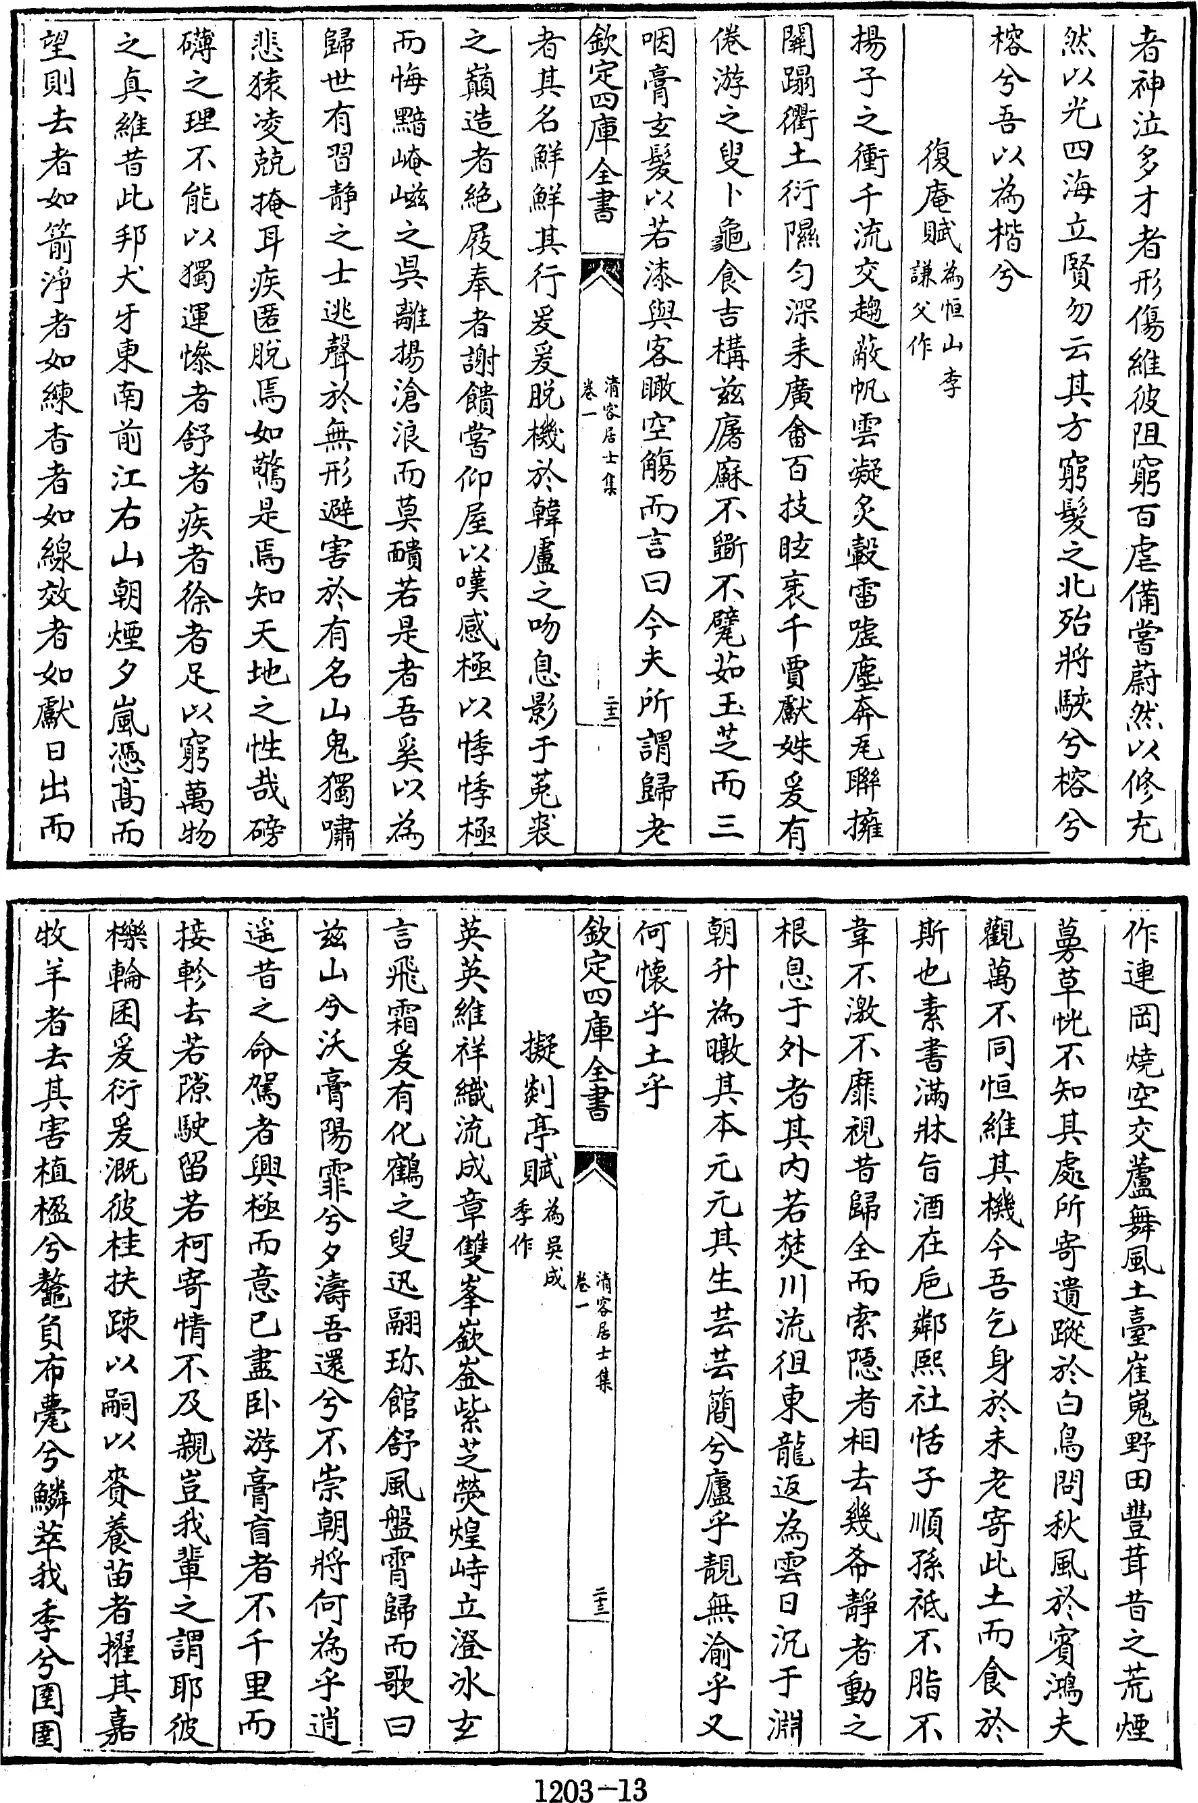 者神泣多才者形傷維彼阻窮百虐備嘗蔚然以修充
然以光四海立賢勿云其方窮髮之北殆將駛兮榕兮
榕兮吾以為楷兮
復庵賦為恒山李謙父作
揚子之衝千流交趨蔽帆雲凝炙轂雷噓塵奔尾聯擁
闤蹋衢土衍隰勻深耒廣畬百技眩裹千賈獻姝爰有
倦游之叟卜龜食吉構兹廜㢝不斵不甓茹玉芝而三
咽膏玄髮以若漆與客瞰空觴而言曰今夫所謂歸老
欽定四庫全書
清容居士集
卷一
二十三
者其名鮮鮮其行爰爰脱機於韓盧之吻息影于菟裘
之巔造者絶屐奉者謝饋嘗仰屋以嘆感極以悸悸極
而悔黯崦嵫之吳離揚滄浪而莫醻若是者吾奚以為
歸世有習靜之士逃聲於無形避害於有名山鬼獨嘯
悲猿凌兢掩耳疾匿脱焉如驚是焉知天地之性哉磅
礴之理不能以獨運慘者舒者疾者徐者足以窮萬物
之真維昔此邦犬牙東南前江右山朝煙夕嵐憑髙而
望則去者如箭淨者如練杳者如線效者如獻日出而
作連岡燒空交蘆舞風土臺崔嵬野田豐茸昔之荒煙
蔓草恍不知其處所寄遺蹤於白鳥問秋風於賓鴻夫
觀萬不同恒維其機今吾乞身於未老寄此土而食於
斯也素書滿牀旨酒在巵鄰熙社恬子順孫祗不脂不
韋不激不靡視昔歸全而索隠者相去幾希靜者動之
根息于外者其内若焚川流徂東龍返為雲日沉于淵
朝升為暾其本元元其生芸芸簡兮廬乎靚無渝乎又
何懷乎土乎
欽定四庫全書
清容居士集
卷一
二十三
擬剡亭賦為吳成季作
英英維祥織流成章雙峯嶔崟紫芝熒煌峙立澄冰玄
言飛霜爰有化鶴之叟迅翮珎館舒風盤霄歸而歌曰
兹山兮沃膏陽霏兮夕濤吾還兮不崇朝將何為乎逍
遥昔之命駕者興極而意已盡卧游膏肓者不千里而
接軫去若隙駛留若柯寄情不及親豈我輩之謂耶彼
櫟輪囷爰衍爰溉彼桂扶疎以嗣以賚養苗者擢其嘉
牧羊者去其害植楹兮鼇負布甍兮鱗萃我季兮圉圉
1203-13